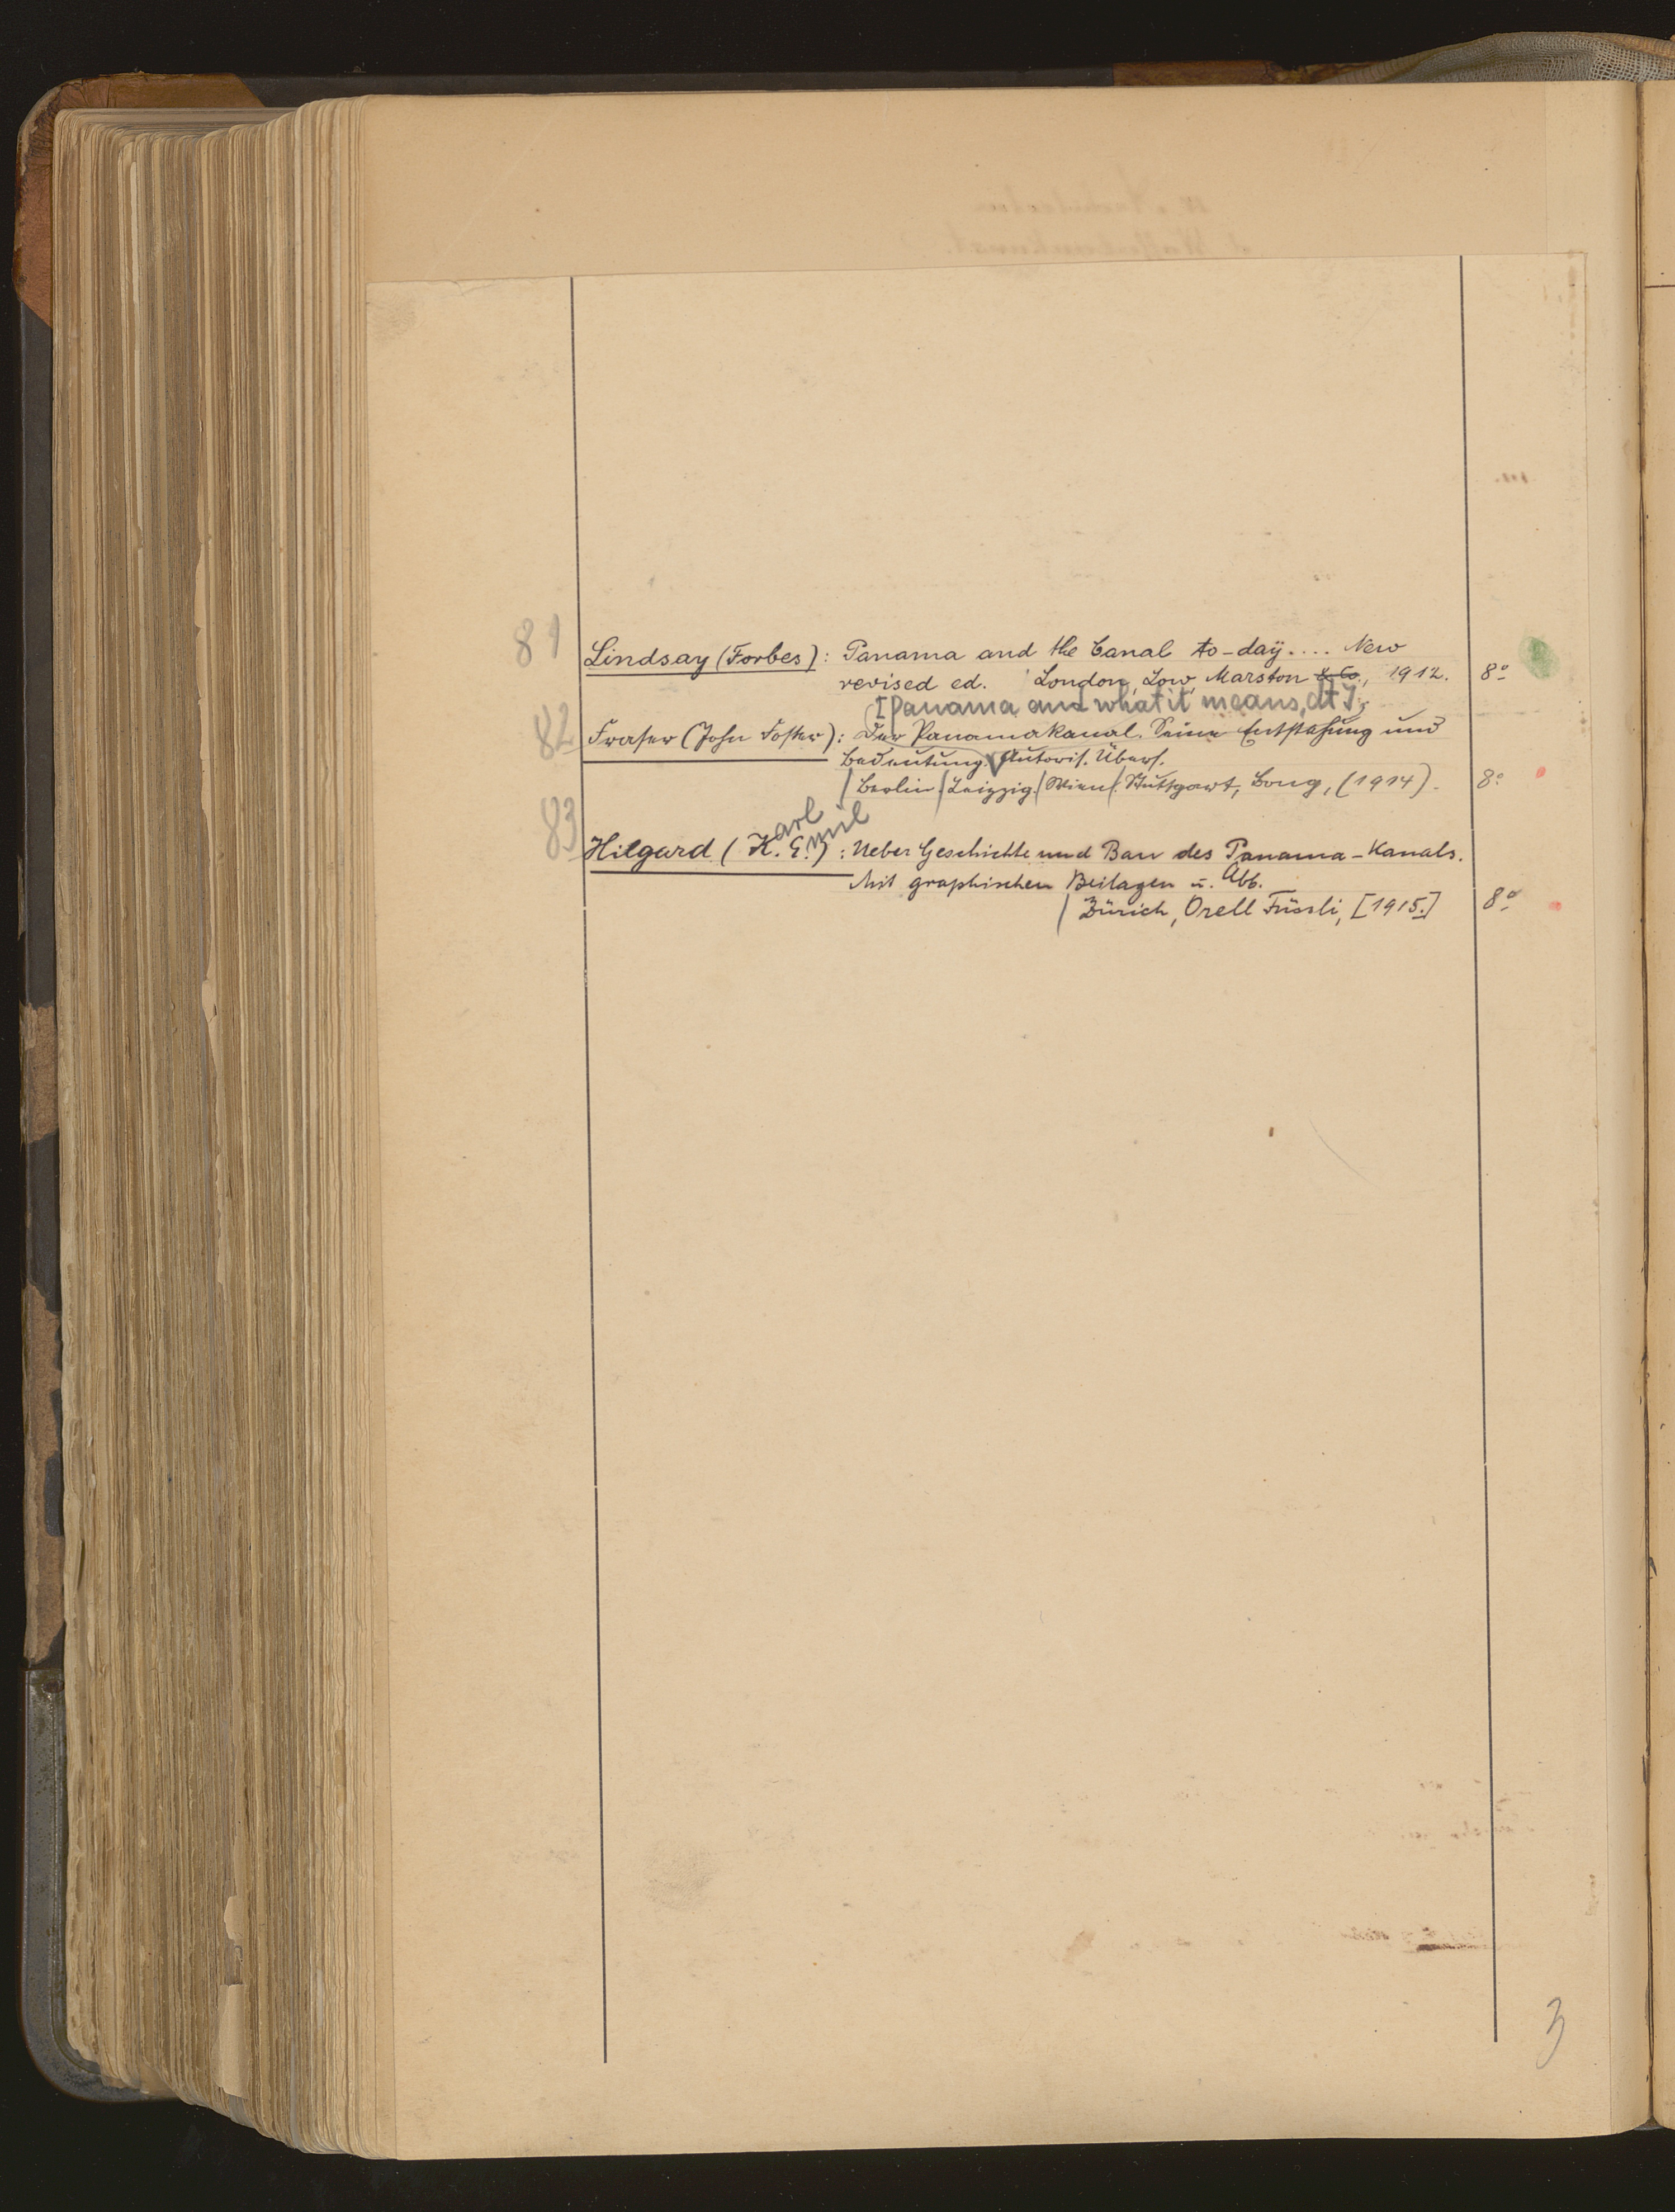 81 Lindsay (Forbes): Panama and the Canal to-day.... New
revised ed. London, Low, Marston & Co., 1912. 8°
[Panama and what it means, dt.]
82 Fraser (John Foster): Der Panamakanal. Seine Entstehung und
Bedeutung. Autoris. Übers.
/ Berlin / Leipzig / Wien / Stuttgart, Bong, (1914). 8°
83
arl mil
Hilgard (K. E.): Ueber Geschichte und Bau des Panama-Kanals.
Mit graphischen Beilagen u. Abb.
/ Zürich, Orell Füssli, [1915.] 8°
3